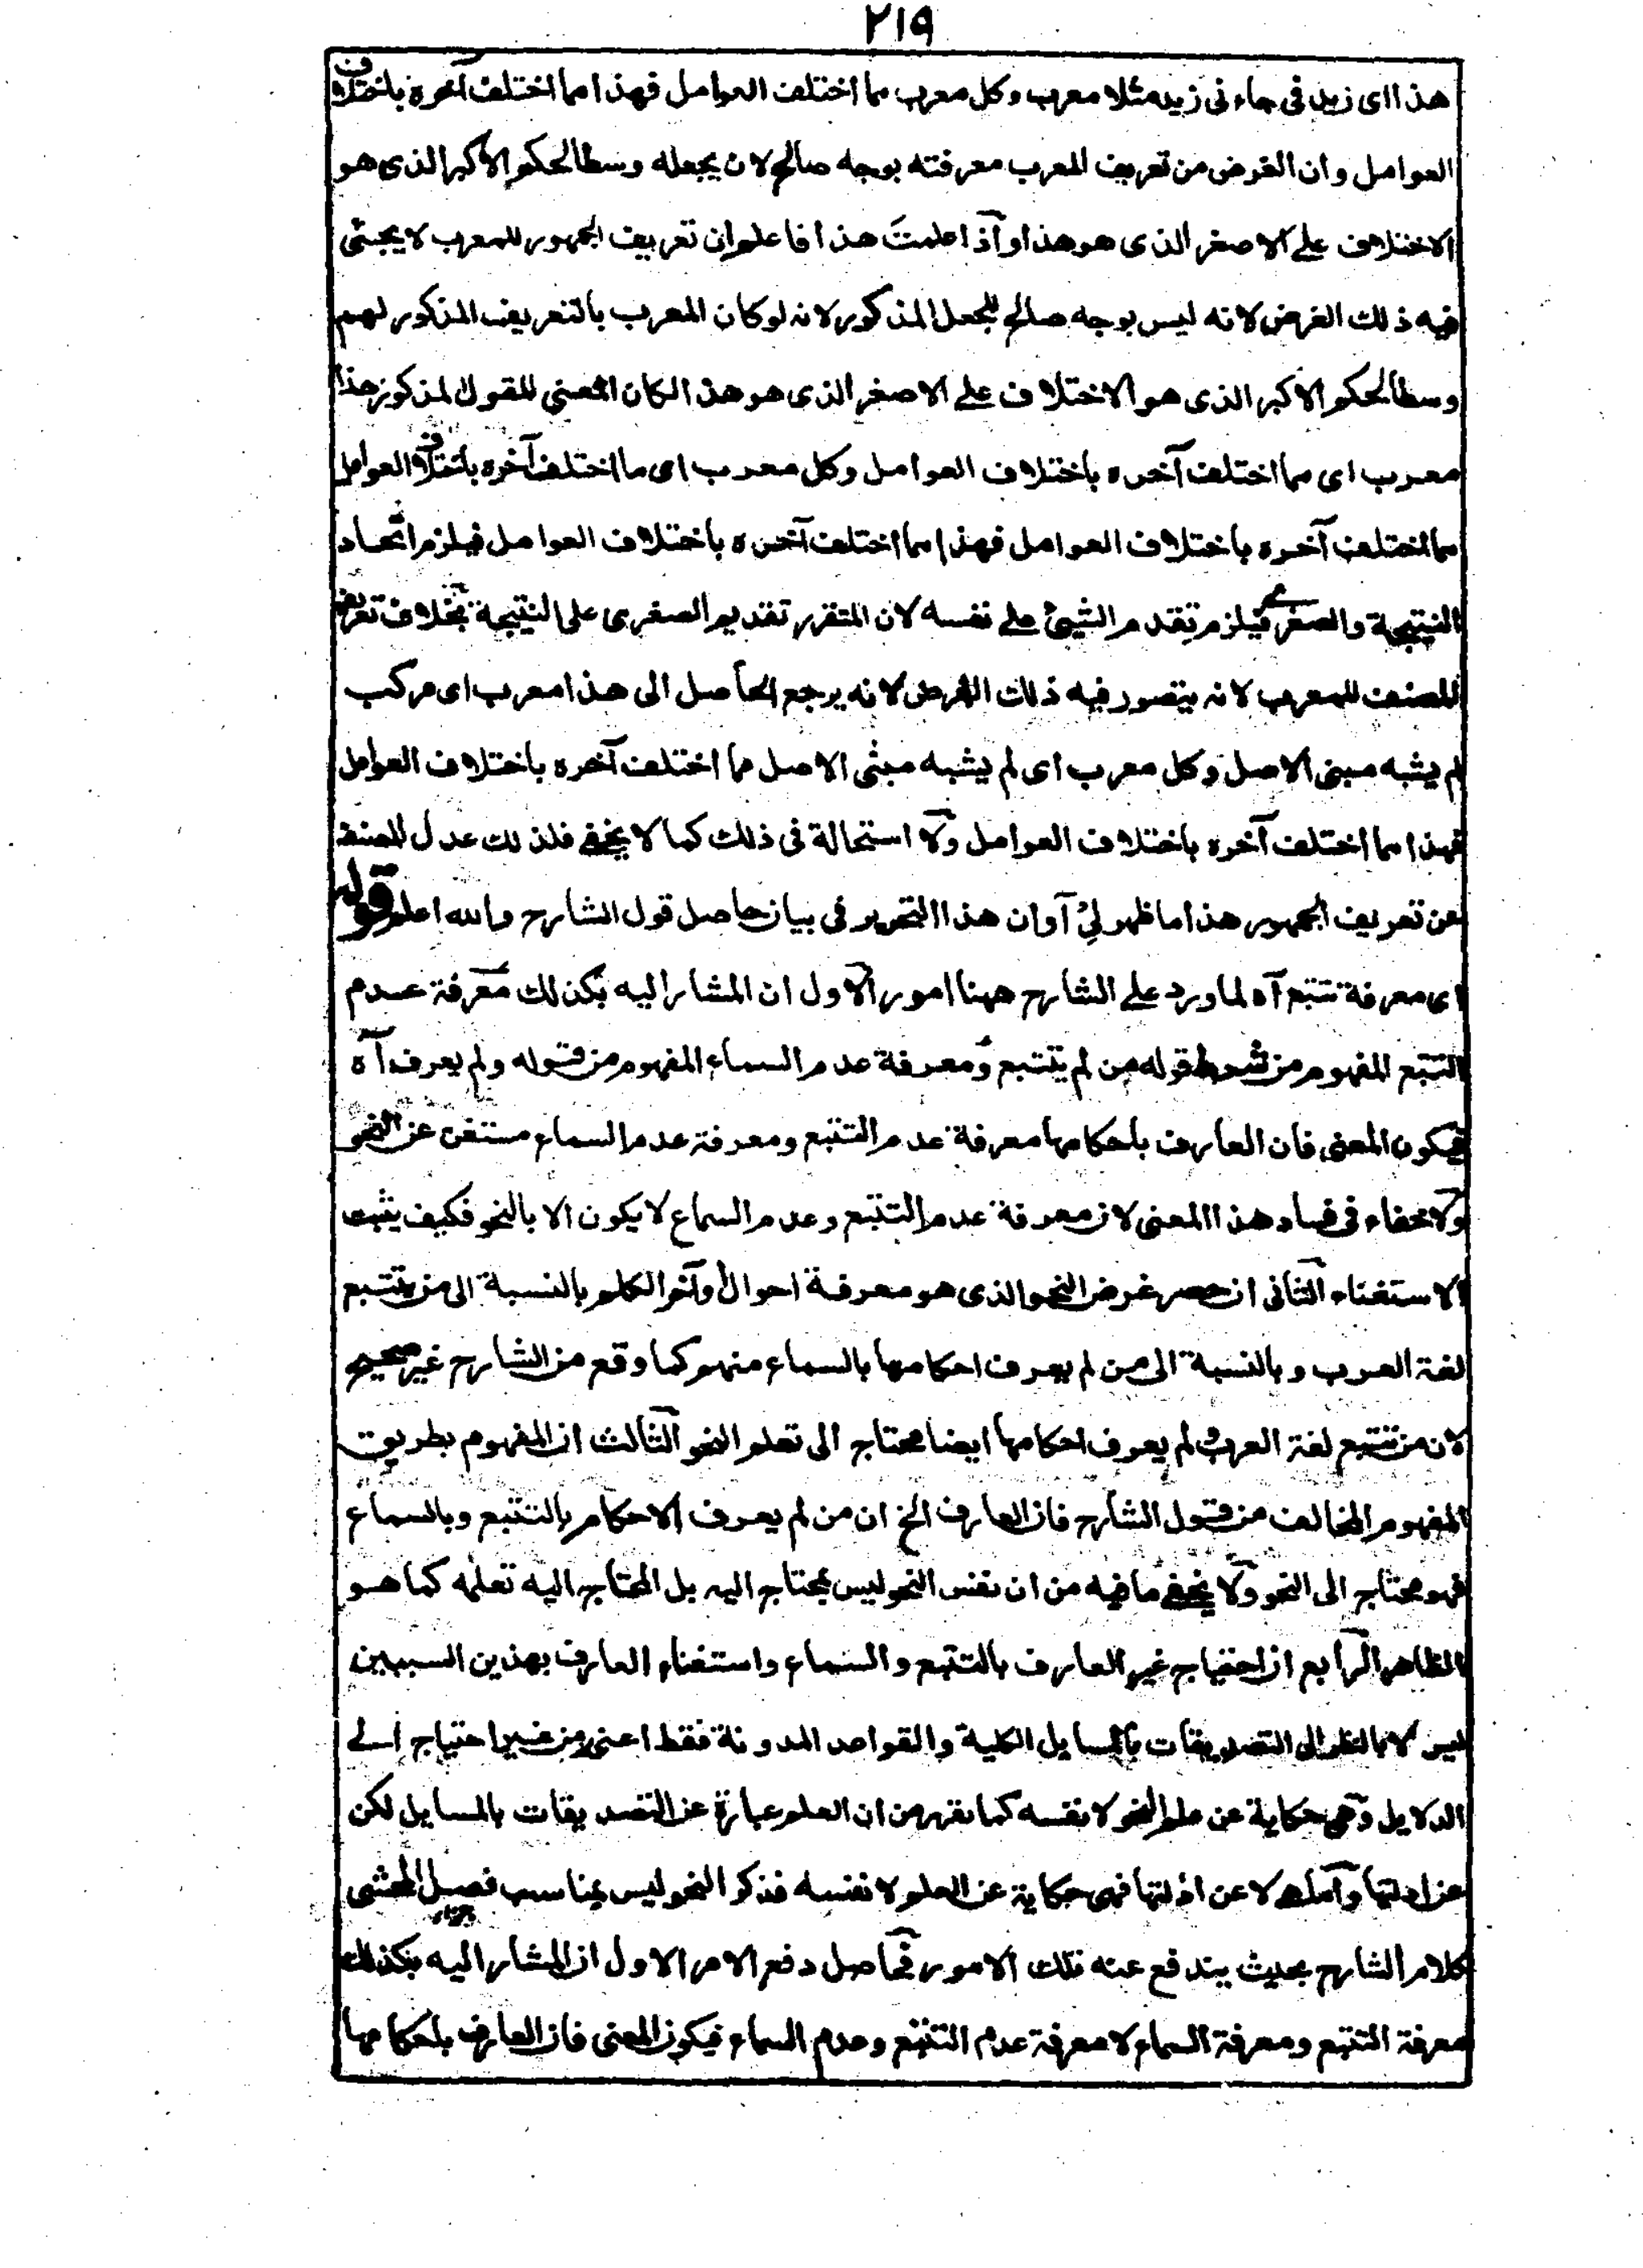 ٢١٩
هذا اى زيد فى جاءنى زيد مثلا معرب وكل معرب مما اختلف العوامل فهذا مما اختلف آخره باختلاف
العوامل وان الغرض من تعريف المعرب معرفته بوجه صالح لان يجعله وسطا لحكم الاكبر الذى هو
الاختلاف على الاصغر الذى هو هذا واذا علمت هذا فاعلم ان تعريف الجمهور للمعرب لا يجئى
فيه ذلك الغرض لانه ليس بوجه صالح للجعل المذكور لانه لو كان المعرب بالتعريف المذكور لهم
وسطا لحكم الاكبر الذى هو الاختلاف على الاصغر الذى هو هذا لكان المعنى للقول المذكور هذا
معرب اى مما اختلف آخره باختلاف العوامل وكل معرب اى ما اختلف آخره باختلاف العوامل
مما اختلف آخره باختلاف العوامل فهذا مما اختلف آخره باختلاف العوامل فيلزم اتحاد
النتيجة والصغرى فيلزم تقدم الشيئ على نفسه لان المتقرر تقديم الصغرى على النتيجة بخلاف تعريف
المصنف للمعرب لانه يتصور فيه ذلك الغرض لانه يرجع الحاصل الى هذا معرب اى مركب
لم يشبه مبنى الاصل وكل معرب اى لم يشبه مبنى الاصل مما اختلف آخره باختلاف العوامل
فهذا مما اختلف آخره باختلاف العوامل ولا استحالة فى ذلك كما لا يخفى فلذلك عدل المصنف
عن تعريف الجمهور هذا ما ظهر لى آوان هذا التحرير فى بيان حاصل قول الشارح والله اعلم قوله
اى معرفة تتبع آه لما ورد على الشارح ههنا امور الاول ان المشار اليه بكذلك معرفة عدم
التتبع المفهوم من قوله من لم يتتبع ومعرفة عدم السماع المفهوم من قوله ولم يعرف آه
فيكون المعنى فان العارف باحكامها معرفة عدم التتبع ومعرفة عدم السماع مستغن عن النحو
ولا خفاء فى فساد هذا المعنى لان معرفة عدم التتبع وعدم السماع لا يكون الا بالنحو فكيف يثبت
الاستغناء الثانى ان حصر غرض النحو الذى هو معرفة احوال اواخر الكلم بالنسبة الى من يتتبع
لغة العرب وبالنسبة الى من لم يعرف احكامها بالسماع منهم كما وقع من الشارح غير صحيح
لان من تتبع لغة العرب ولم يعرف احكامها ايضا محتاج الى تعلم النحو الثالث ان المفهوم بطريق
المفهوم المخالف من قول الشارح فان العارف الخ ان من لم يعرف الاحكام بالتتبع وبالسماع
فهو محتاج الى النحو ولا يخفى ما فيه من ان نفس النحو ليس بمحتاج اليه بل المحتاج اليه تعلمه كما هو
الظاهر الرابع ان احتياج غير العارف بالتتبع والسماع واستغناء العارف بهذين السببين
ليس الا بالنظر الى التصديقات بالمسايل الكلية والقواعد المدونة فقط اعنى من غير احتياج الى
الدلايل وهى حكاية عن علم النحو لا نفسه كما تقرر من ان العلم عبارة عن التصديقات بالمسايل لكن
عن ادلتها واما لا عن ادلتها فهى حكاية عن العلم لا نفسه فذكر النحو ليس بمناسب فصل المحشى
كلام الشارح بحيث يندفع عنه تلك الامور فحاصل دفع الامر الاول ان المشار اليه بكذلك
معرفة التتبع ومعرفة السماع لا معرفة عدم التتبع وعدم السماع فيكون المعنى فان العارف باحكامها